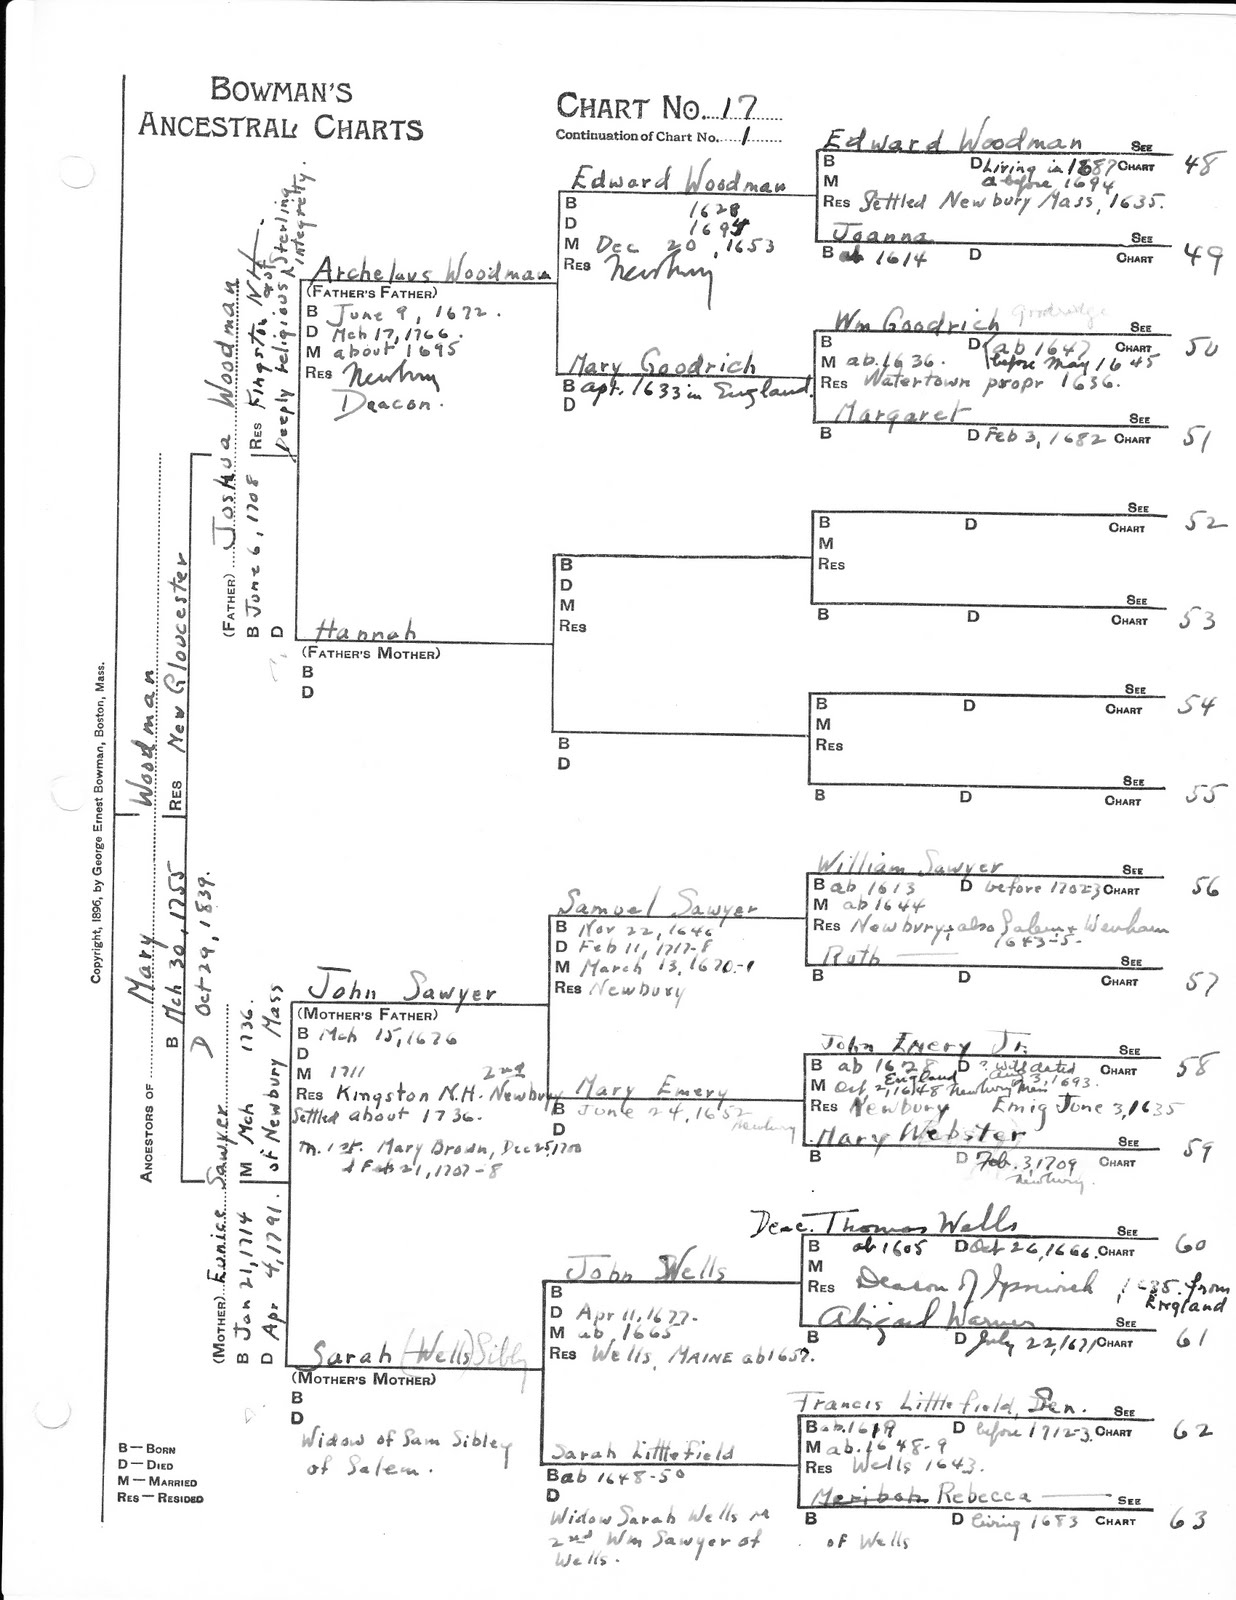 BOWMAN'S
ANCESTRAL CHARTS
CHART NO. 17
Continuation of Chart No. 1
Copyright, 1896, by George Ernest Bowman, Boston, Mass.
ANCESTORS OF Mary Woodman
B Mch 30, 1755 RES New Gloucester
D Oct 29, 1839.
(FATHER) Joshua Woodman
B June 6, 1708 RES Kingston NH.
D Deeply religious & of Sterling integrity
(MOTHER) Eunice Sawyer
B Jan 21, 1714 M Mch 1736.
D Apr 4, 1791. of Newbury Mass
Archelaus Woodman
(FATHER'S FATHER)
B June 9, 1672.
D Mch 17, 1766.
M about 1695
RES Newbury
Deacon.
Hannah
(FATHER'S MOTHER)
B
D
John Sawyer
(MOTHER'S FATHER)
B Mch 15, 1676
D
M 1711 2nd
RES Kingston N.H. Newbury
Settled about 1736.
m. 1st. Mary Brown, Dec 25, 1700
d Feb 21, 1707-8
Sarah (Wells) Sibly
(MOTHER'S MOTHER)
B
D
Widow of Sam Sibley
of Salem.
Edward Woodman
B 1628
D 1694
M Dec 20, 1653
RES Newbury
Mary Goodrich
B apt. 1633 in England.
D
B
D
M
RES
B
D
Samuel Sawyer
B Nov 22, 1646
D Feb 11, 1717-8
M March 13, 1670-1
RES Newbury
Mary Emery
B June 24, 1652
Newbury
D
John Wells
B
D Apr 11, 1677.
M ab, 1665
RES Wells, MAINE ab 1657.
Sarah Littlefield
B ab 1648-50
D
Widow Sarah Wells M
2nd Wm Sawyer of
Wells.
Edward Woodman SEE
B D Living in 1687 CHART 48
M a before 1694
RES Settled Newbury Mass, 1635.
Joanna SEE
B ab 1614 D CHART 49
Wm Goodrich Goodridge SEE
B D (ab 1647) CHART 50
M ab. 1636. before May 1645
RES Watertown propr 1636.
Margaret SEE
B D Feb 3, 1682 CHART 51
SEE
B D CHART 52
M
RES
SEE
B D CHART 53
SEE
B D CHART 54
M
RES
SEE
B D CHART 55
William Sawyer SEE
B ab 1613 D before 1702-3 CHART 56
M ab 1644
RES Newbury, also Salem & Wenham
1643-5.
Ruth SEE
B D CHART 57
John Emery Jr. SEE
B ab 1628 D ? will dated CHART 58
England Aug 3, 1693.
M Oct 2, 1648 Newbury Mass
RES Newbury Emig June 3, 1635
Mary Webster SEE
B D Feb. 3, 1709 CHART 59
Newbury.
Deac. Thomas Wells SEE
B ab 1605 D Oct 26, 1666. CHART 60
M
RES Deacon of Ipswich, 1635. from
England
Abigail Warner SEE
B D July 22, 1671 CHART 61
Francis Littlefield, Sen. SEE
B ab. 1619 D before 1712-3. CHART 62
M ab. 1648-9
RES Wells 1643.
Meribah Rebecca SEE
B D living 1683 CHART 63
of Wells
B — BORN
D — DIED
M — MARRIED
RES — RESIDED